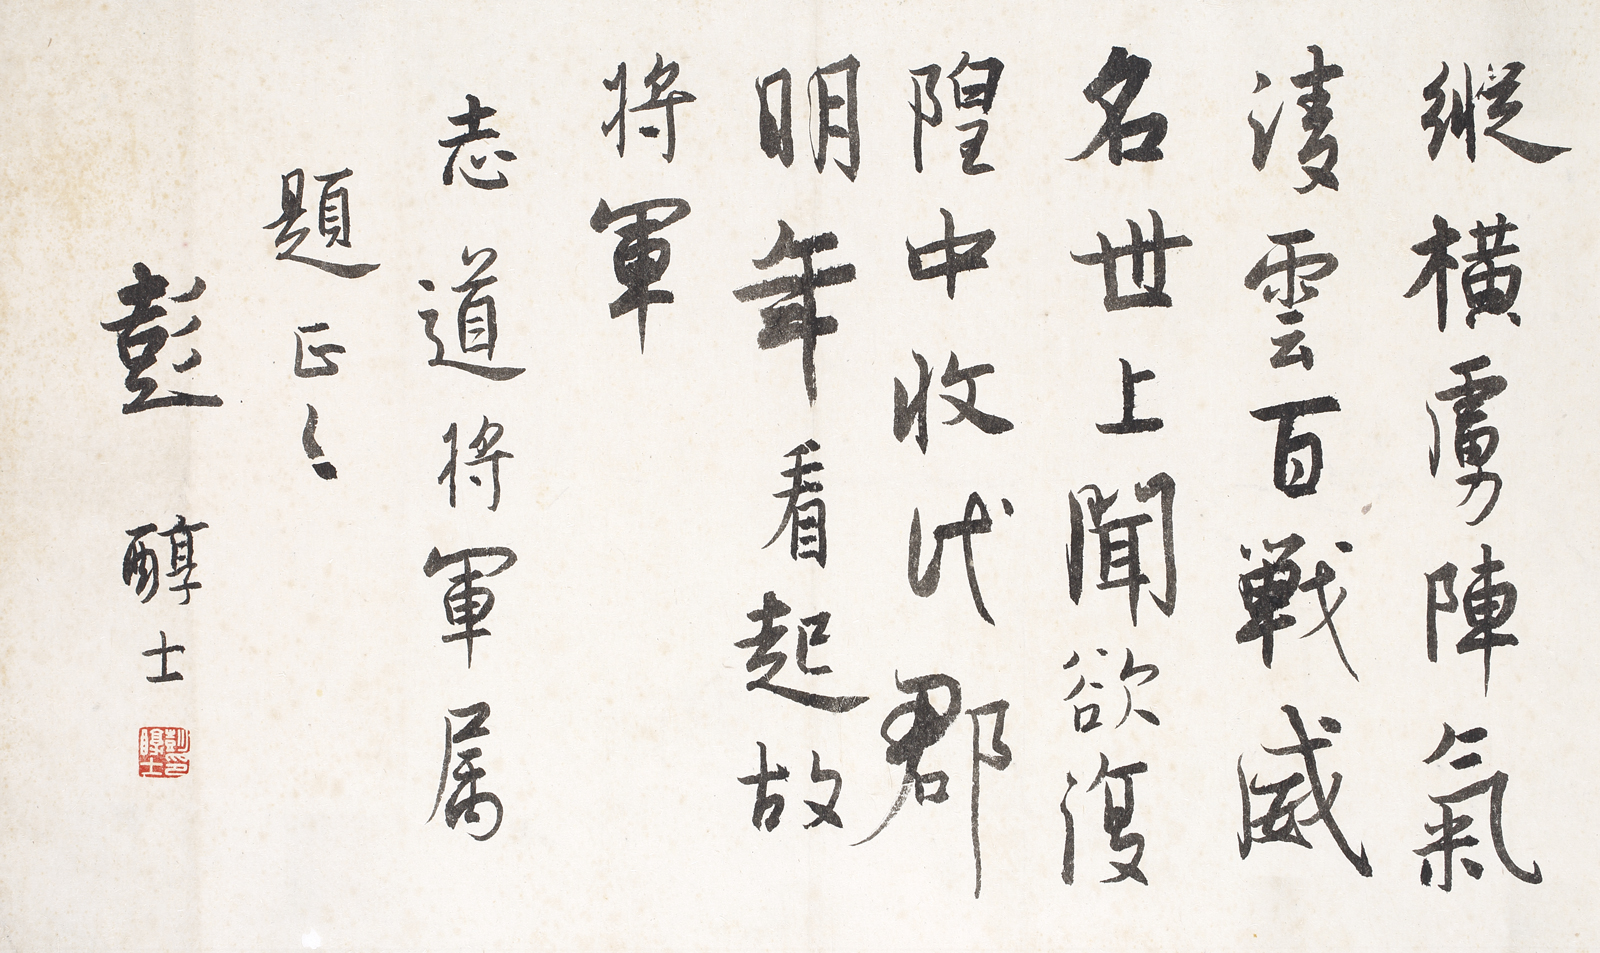 縱橫虜陣氣
淩雲百戰威
名世上聞欲復
隍中收代郡
明年看起故
將軍
志道將軍屬
題正之
彭醇士
彭醇士印